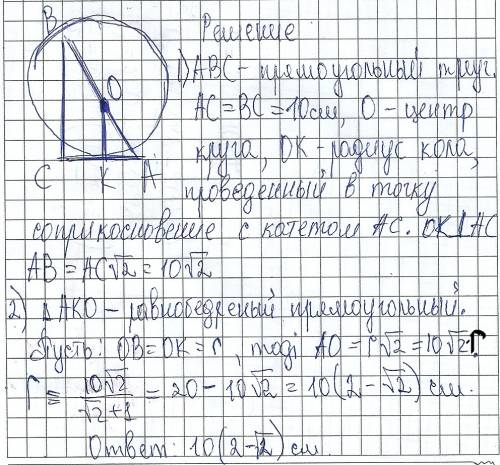 Решение
1) ABC - прямоугольный треуг.
AC = BC = 10 см, O - центр
круга, OK - радиус кола,
проведенный в точку
соприкосновение с катетом AC. OK⊥AC
AB = AC√2 = 10√2
2) ΔAKO - равнобедреный прямоугольный.
Пусть: OB = OK = r, тоді AO = r√2 = 10√2 - r
r = 10√2/(√2+1) = 20 - 10√2 = 10(2 - √2) см.
Ответ: 10(2-√2) см.
B
O
C K A